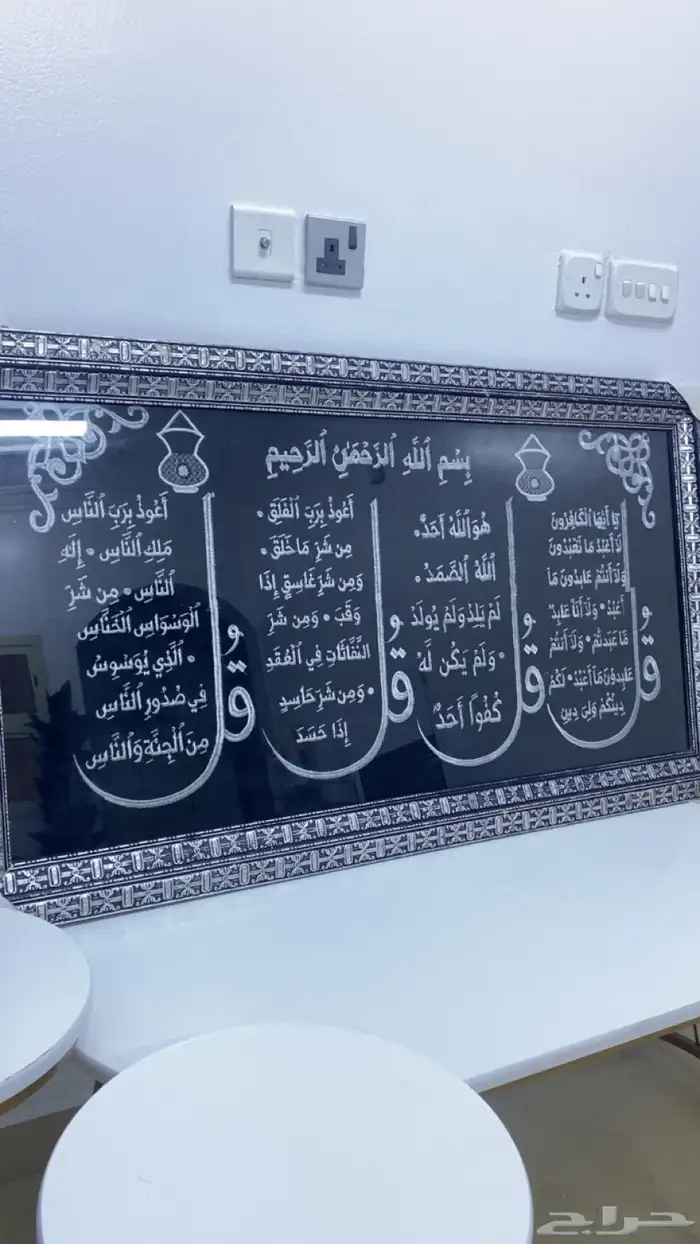 بِسْمِ ٱللَّهِ ٱلرَّحْمَٰنِ ٱلرَّحِيمِ
قُل
يَا أَيُّهَا الْكَافِرُونَ
لَا أَعْبُدُ مَا تَعْبُدُونَ
وَلَا أَنْتُمْ عَابِدُونَ مَا
أَعْبُدُ • وَلَا أَنَا عَابِدٌ
مَّا عَبَدتُّمْ • وَلَا أَنْتُمْ
عَابِدُونَ مَا أَعْبُدُ • لَكُمْ
دِينُكُمْ وَلِيَ دِينِ
قُل
هُوَ اللَّهُ أَحَدٌ •
اللَّهُ الصَّمَدُ •
لَمْ يَلِدْ وَلَمْ يُولَدْ
• وَلَمْ يَكُن لَّهُ
كُفُوًا أَحَدٌ
قُل
أَعُوذُ بِرَبِّ الْفَلَقِ •
مِن شَرِّ مَا خَلَقَ •
وَمِن شَرِّ غَاسِقٍ إِذَا
وَقَبَ • وَمِن شَرِّ
النَّفَّاثَاتِ فِي الْعُقَدِ
• وَمِن شَرِّ حَاسِدٍ
إِذَا حَسَدَ
قُل
أَعُوذُ بِرَبِّ النَّاسِ
مَلِكِ النَّاسِ • إِلَهِ
النَّاسِ • مِن شَرِّ
الْوَسْوَاسِ الْخَنَّاسِ
• الَّذِي يُوَسْوِسُ
فِي صُدُورِ النَّاسِ
مِنَ الْجِنَّةِ وَالنَّاسِ
حراج